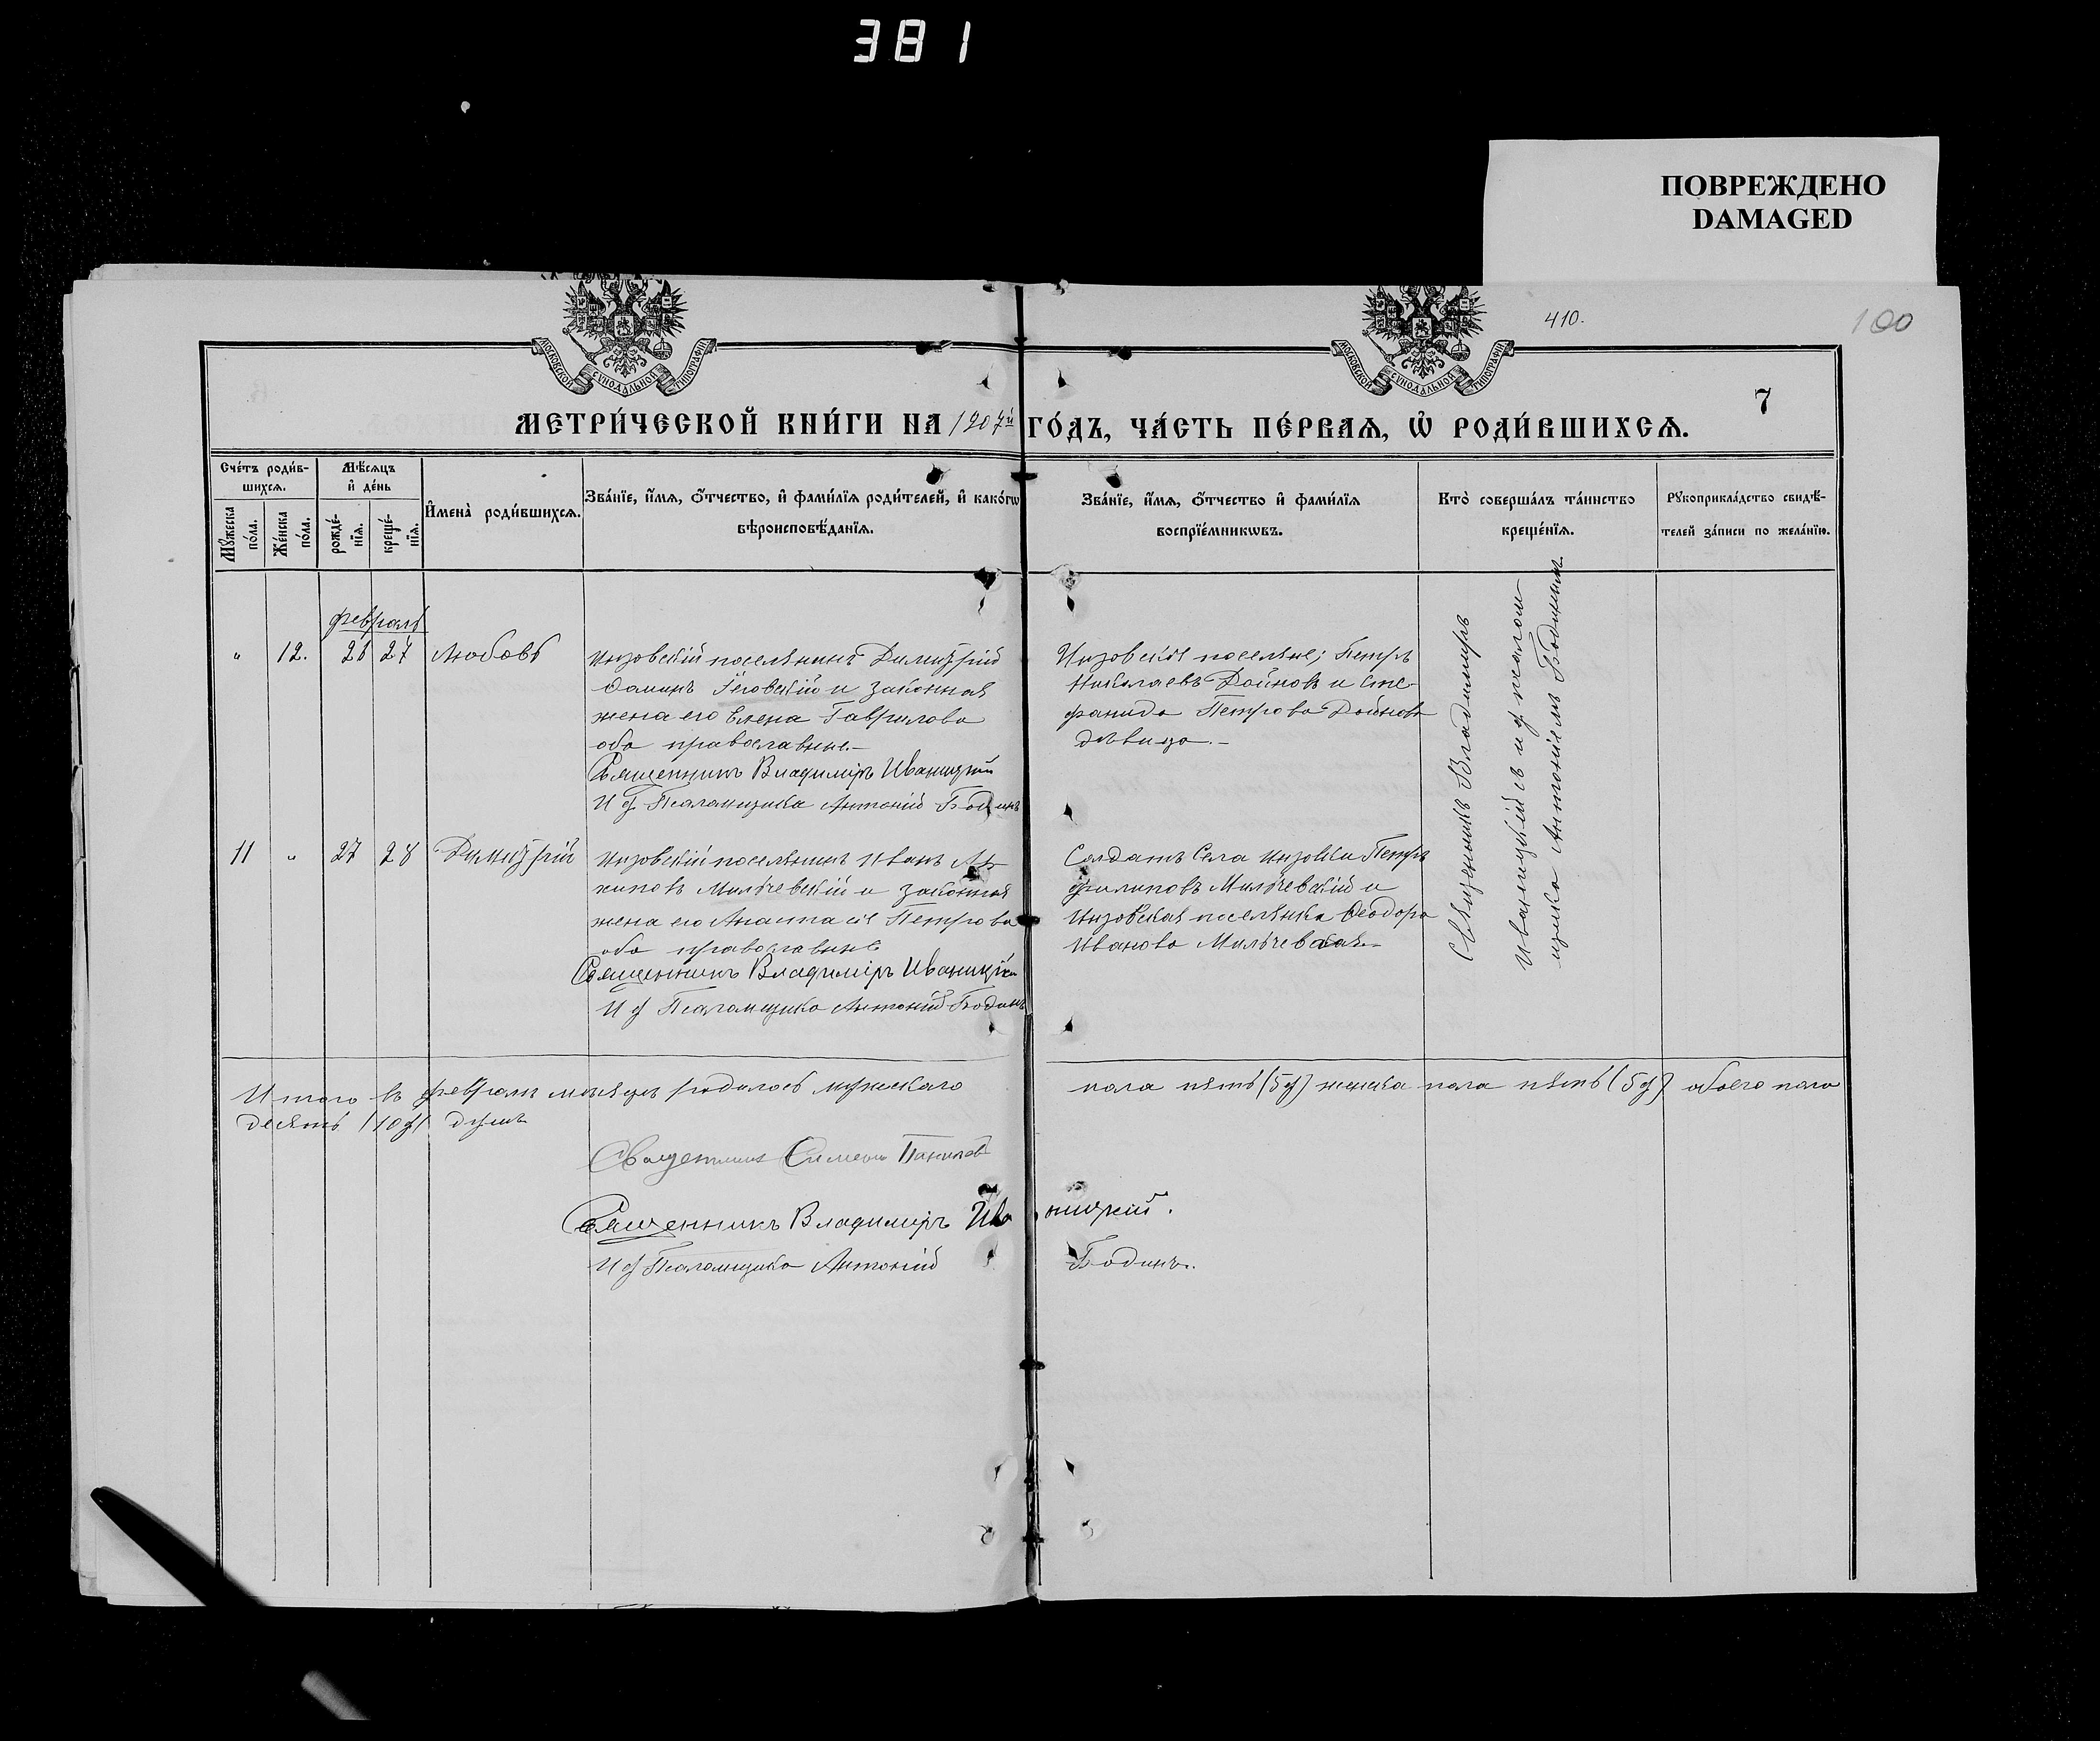 381
ПОВРЕЖДЕНО
DAMAGED
410.
100
МОСКОВСКОЙ СѴНОДАЛЬНОЙ ТИПОГРАФІИ
МОСКОВСКОЙ СѴНОДАЛЬНОЙ ТИПОГРАФІИ
7
МЕТРИ́ЧЕСКОЙ КНИ́ГИ НА 1907й ГО́ДЪ, ЧА́СТЬ ПЕ́РВАѦ, Ѡ҆ РОДИ́ВШИХСѦ.
Сче́тъ роди́в-
шихсѧ.
Мꙋ́жеска по́ла.
Же́нска по́ла.
Мѣ́сѧцъ
и҆ де́нь
рожде́-
нїѧ.
креще́-
нїѧ.
И҆мена̀ роди́вшихсѧ.
Зва́нїе, и҆́мѧ, ѻ҆́тчество, и҆ фами́лїѧ роди́телей, и҆ како́гѡ
вѣроисповѣ́данїѧ.
Зва́нїе, и҆́мѧ, ѻ҆́тчество и҆ фами́лїѧ
воспрїе́мникѡвъ.
Кто̀ соверша́лъ та́инство
креще́нїѧ.
Рꙋкоприкла́дство свидѣ́-
телей за́писи по жела́нїю.
февраль
" 12. 26 27 Любовь
Инзовскій поселянинъ Димитрій
законная
жена его Елена Гаврилова
оба православные.—
Священникъ Владиміръ Иваницкій
И д Псаломщика Антоній Бодинъ
Инзовскіе поселяне; Петръ
Николаевъ Дойновъ и Сте-
фанида Петрова Дойнова
дѣвица.—
11 " 27 28 Димитрій
Инзовскій поселянинъ Иванъ
Мильчевскій и законная
жена его Анастасія Петрова
оба православные
Священникъ Владиміръ Иваницкій
И д Псаломщика Антоній Бодинъ
Солдатъ Села Инзовки Петръ
Филиповъ Мильчевскій и
Инзовская поселянка Ѳеодора
Иванова Мильчевская.—
Священникъ Владиміръ
Иваницкій съ и д псалом-
щика Антоніемъ Бодинымъ.
Итого въ февралѣ мѣсяцѣ родилось мужескаго пола пять (5 д) женска пола пять (5 д) обоего пола
десять (10 д) душъ
Священникъ Симеонъ
Священникъ Владиміръ Иваницкій.
И д Псаломщика Антоній Бодинъ.